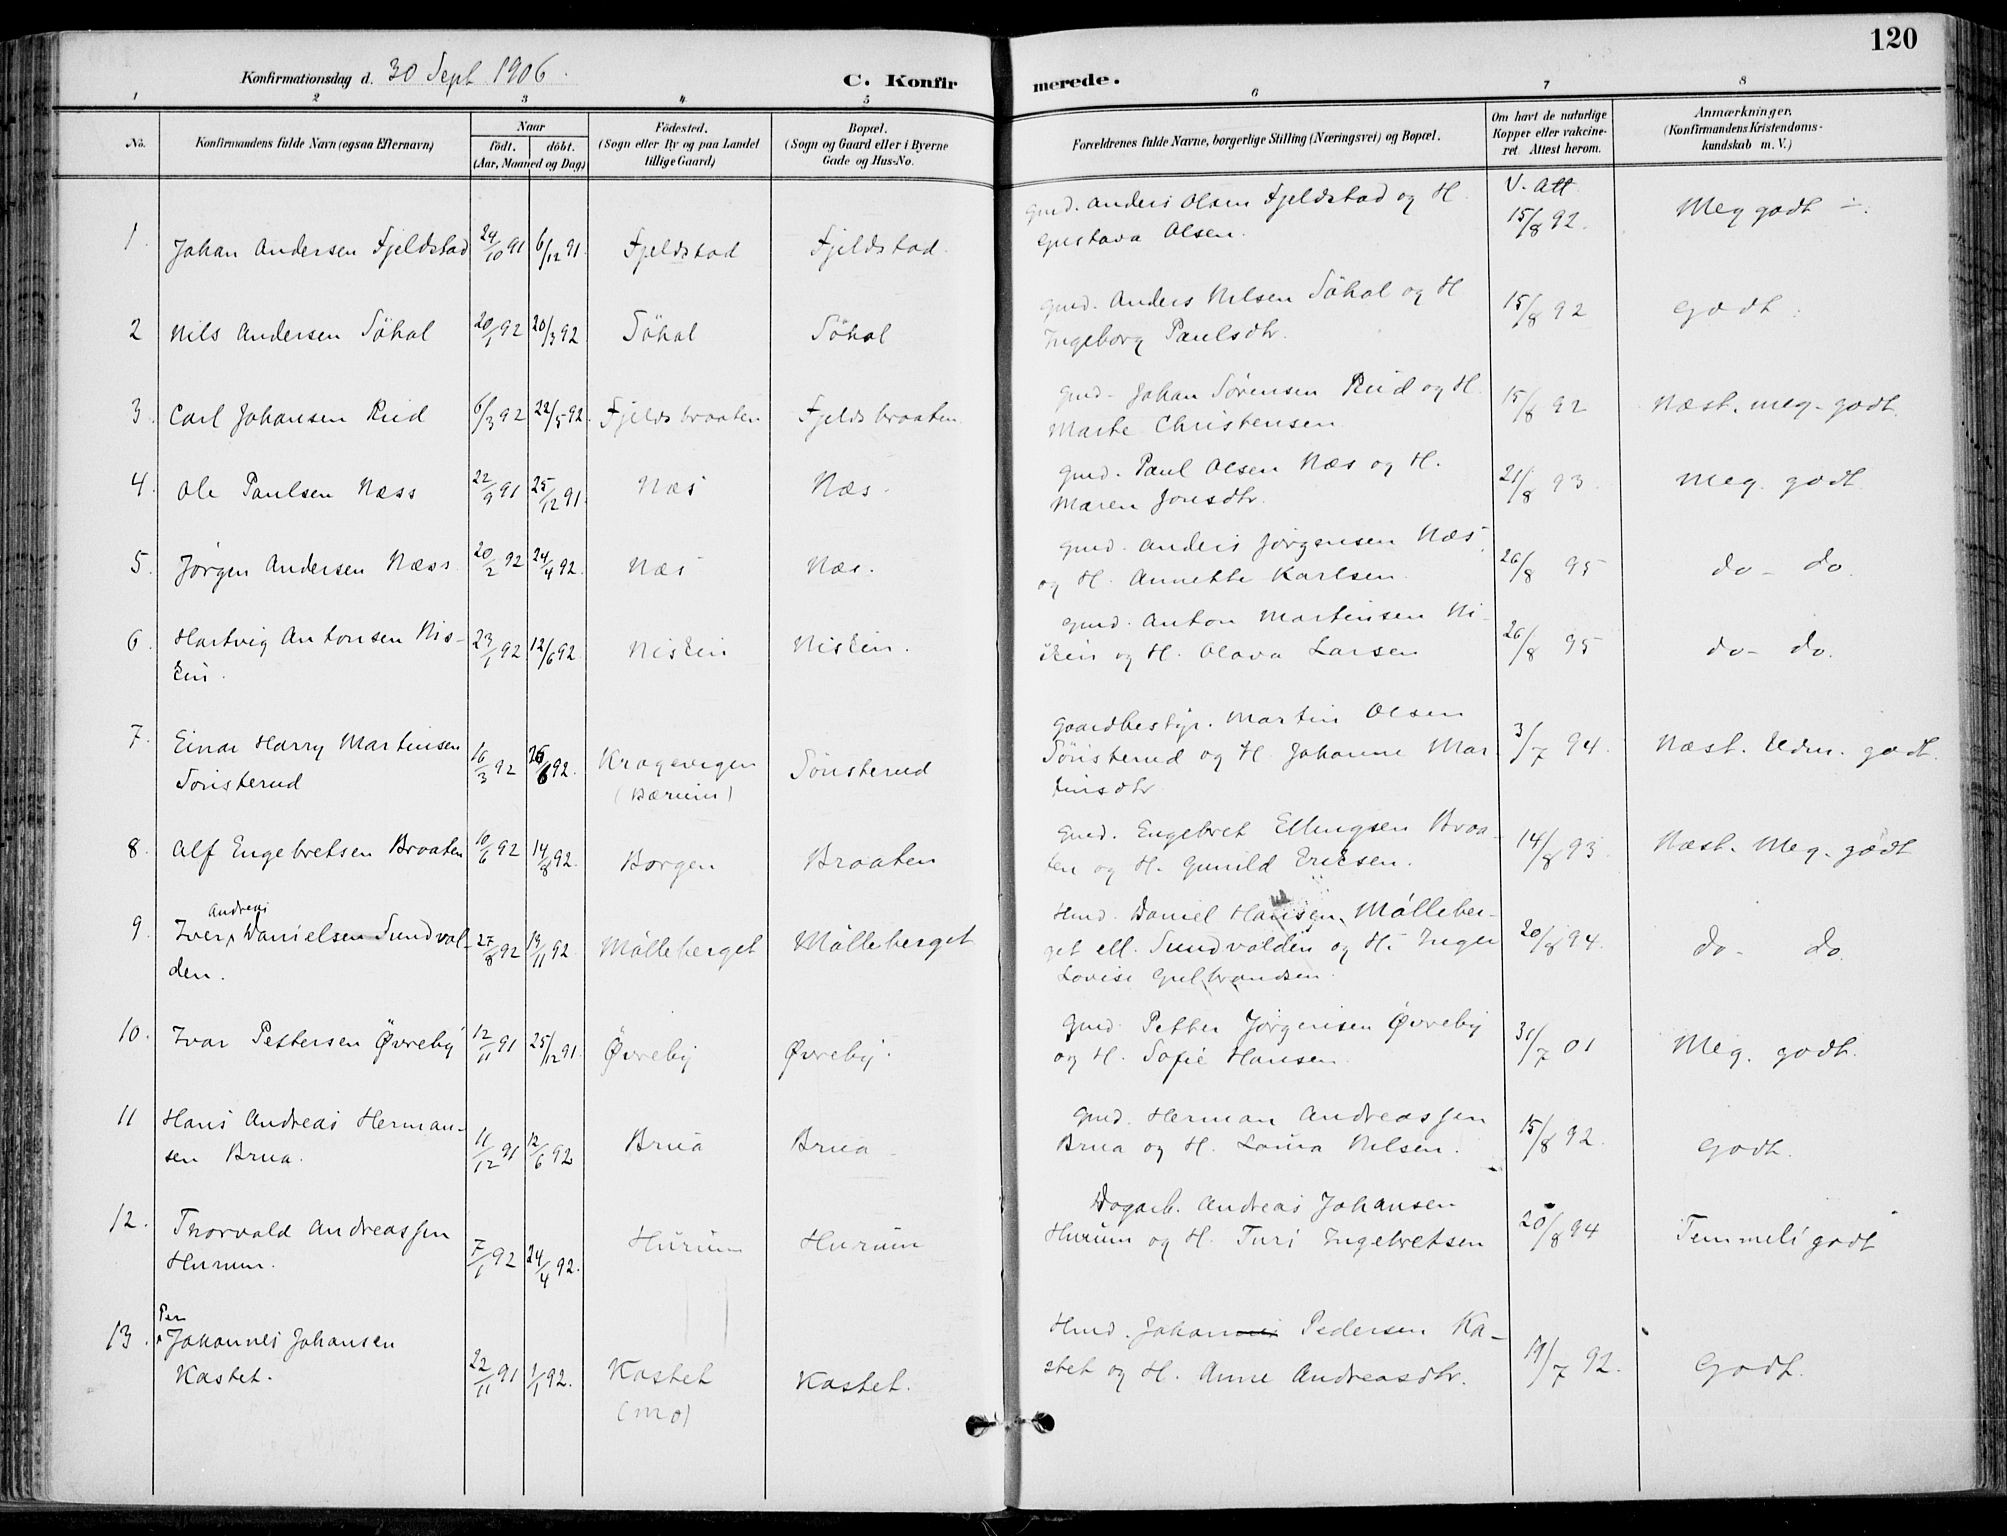 120
Konfirmationsdag d. 30 Sept. 1906.
C. Konfirmerede.
1 2 3 4 5 6 7 8
No.
Konfirmandens fulde Navn (ogsaa Efternavn)
Naar
födt. döbt.
(Aar, Maaned og Dag)
Födested.
(Sogn eller By og paa Landet
tillige Gaard)
Bopæl.
(Sogn og Gaard eller i Byerne
Gade og Hus-No.
Forældrenes fulde Navne, borgerlige Stilling (Næringsvei) og Bopæl.
Om havt de naturlige
Kopper eller vakcine-
ret. Attest herom.
Anmærkninger.
(Konfirmandens Kristendoms-
kundskab m. V.)
V. Att.
1. Johan Andersen Fjeldstad 24/10 91 6/12 91 Fjeldstad Fjeldstad. Gmd. Anders Olsen Fjeldstad og H.
Gustava Olsen. 15/8 92. Meg godt ÷.
2 Nils Andersen Söhol 20/1 92 20/3 92 Söhol Söhol Gmd. Anders Nilsen Söhol og H
Ingeborg Paulsdtr. 15/8 92 Godt.
3. Carl Johansen Rud 6/3 92 22/5 92. Fjeldsbraaten Fjeldsbraaten Gmd. Johan Sørensen Rud og H.
Marte Christensen 15/8 92 Næst. meg. godt.
4. Ole Paulsen Næss 22/9 91 25/12 91. Næs Næs. Gmd. Paul Olsen Næs og H.
Maren Jonsdtr. 21/8 93. Meg. godt.
5. Jørgen Andersen Næss 20/2 92 24/4 92. Næs Næs. Gmd. Anders Jørgensen Næs
og H. Annette Karlsen. 26/8 95 do - do.
6. Hartvig Antonsen Nis-
kin. 23/1 92 12/6 92. Niskin Niskin. Gmd. Anton Martinsen Ni-
skin og H. Olava Larsen 26/8 95 do - do.
7. Einar Harry Martinsen
Sönsterud 16/3 92 26/6 92. Kragsvigen
(Bærum) Sönsterud Gaardbestyr. Martin Olsen
Sönsterud og H. Johanne Mar-
tinsdtr 3/7 94. Næst. Udm. godt.
8. Alf Engebretsen Braaten 10/6 92 14/8 92. Borgen Braaten Gmd. Engebret Ellingsen Braa-
ten og H. Gunild Ericsen. 14/8 93. Næst. Meg. godt
9. Andreas
Iver, Danielsen Sundvol-
den. 27/8 92 13/11 92. Mölleberget Mölleberget Hmd. Daniel Hansen, Mölleber-
get ell. Sundvolden og H. Inger
Lovise Gulbrandsen. 20/8 94. do - do.
10. Ivar Pettersen Øvreby 12/11 91 25/12 91. Øvreby Øvreby. Gmd. Petter Jörgensen Øvreby
og H. Sofie Hansen. 31/7 01 Meg. godt.
11 Hans Andreas Herman-
sen Brua. 11/12 91 12/6 92 Brua Brua Gmd. Herman Andreassen
Brua og H. Laura Nilsen. 15/8 92. Godt.
12. Thorvald Andreassen
Hurum. 7/1 92 24/4 92. Hurum Hurum Dagarb. Andreas Johansen
Hurum og H. Turi Ingebretsen 20/8 94 Temmeli godt
13. Per
Johannes Johansen
Kastet. 22/11 91 1/1 92. Kastet
(Mo) Kastet. Hmd. Johannes Pedersen Ka-
stet og H. Anne Andreasdtr. 19/7 92. Godt.